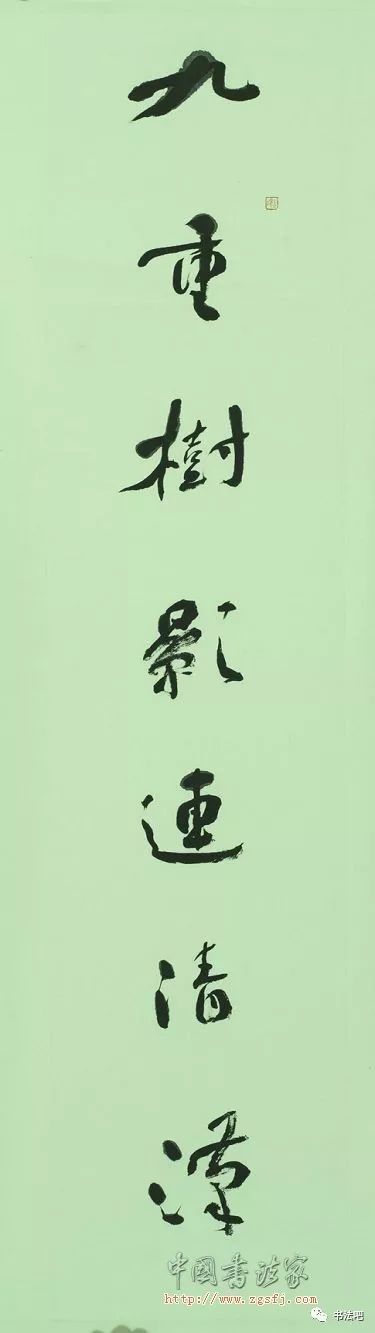 九重樹影連清漢
中國書法家
http://www.zgsfj.com
书法吧